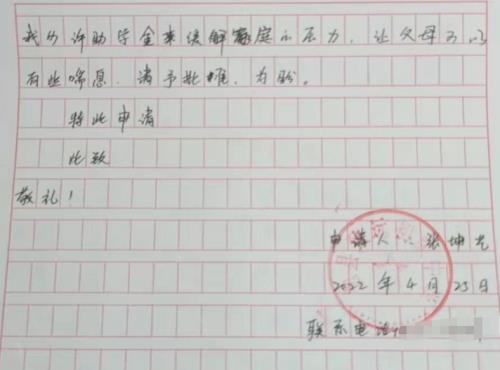 我的许助学金来缓解家庭的压力，让父母可以
有些喘息，请予批准，为盼。
特此申请
此致
敬礼！
申请人：张坤
2022年4月25日
联系电话